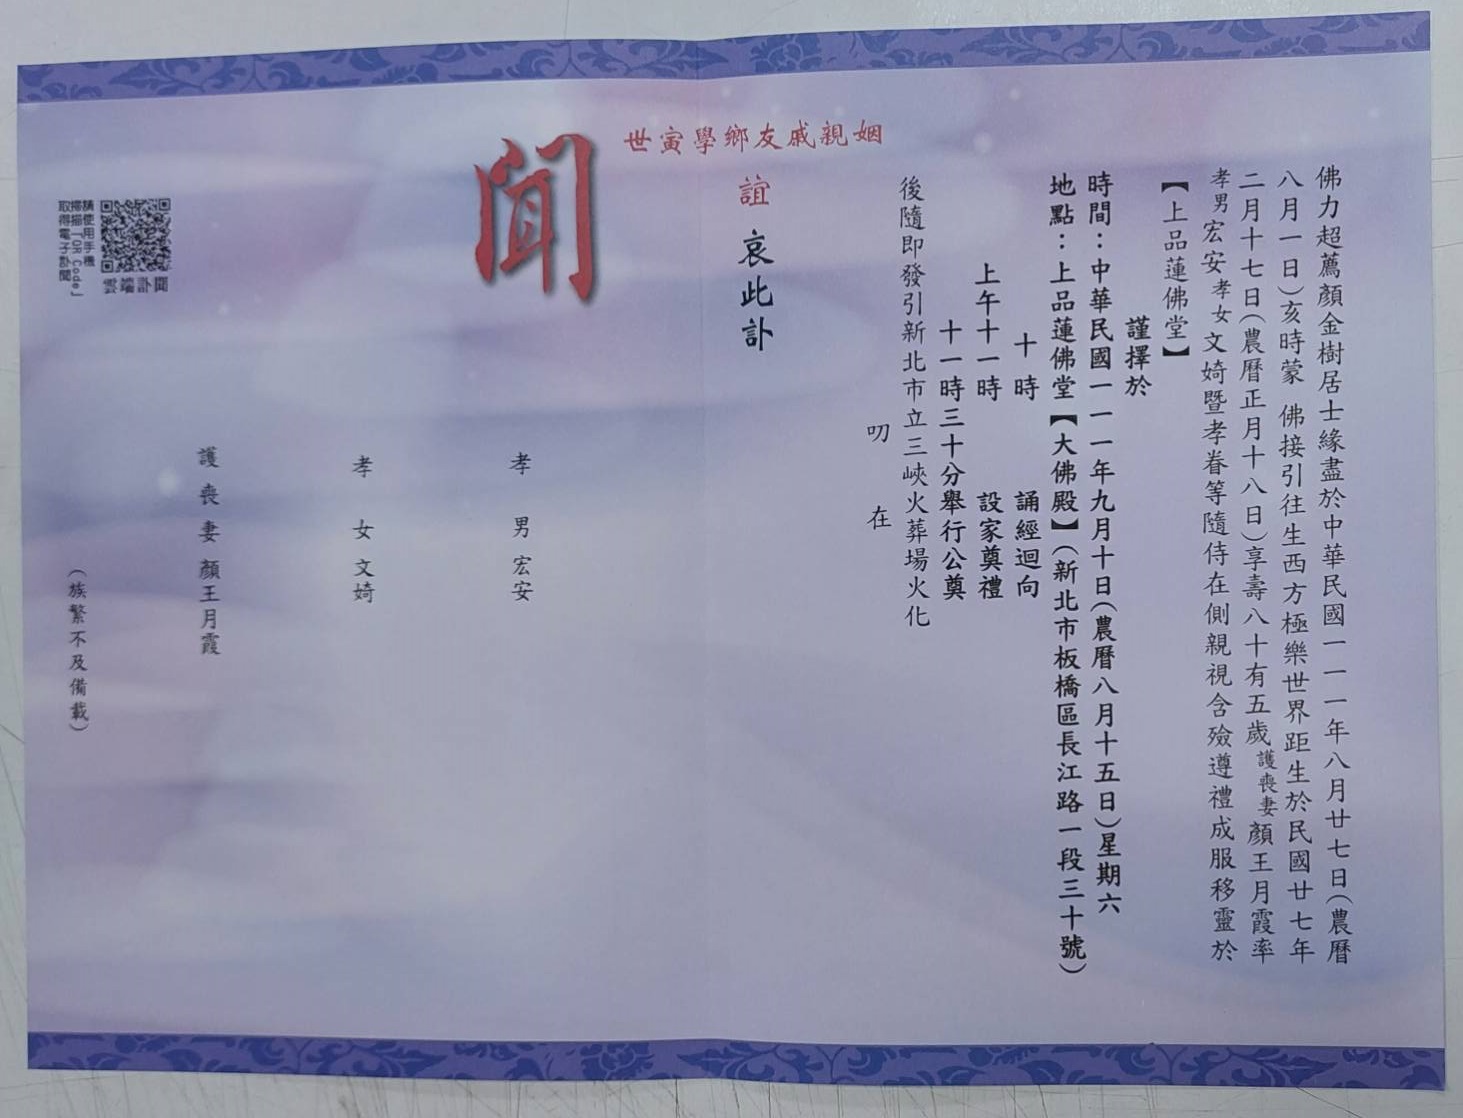 佛力超薦顏金樹居士緣盡於中華民國一一一年八月廿七日(農曆
八月一日)亥時蒙 佛接引往生西方極樂世界距生於民國廿七年
二月十七日(農曆正月十八日)享壽八十有五歲護喪妻顏王月霞率
孝男宏安孝女文婍暨孝眷等隨侍在側親視含殮遵禮成服移靈於
【上品蓮佛堂】
謹擇於
時間：中華民國一一一年九月十日(農曆八月十五日)星期六
地點：上品蓮佛堂【大佛殿】(新北市板橋區長江路一段三十號)
十時 誦經迴向
上午十一時 設家奠禮
十一時三十分舉行公奠
後隨即發引新北市立三峽火葬場火化
叨在
姻親戚友鄉學寅世
誼 哀此訃
聞
孝男 宏安
孝女 文婍
護喪妻 顏王月霞
(族繁不及備載)
雲端訃聞
請使用手機
掃描「QR Code」
取得電子訃聞